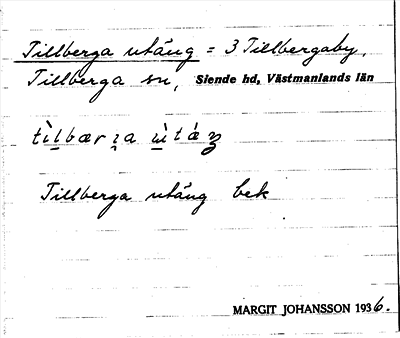 Tillberga utäng = 3 Tillbergaby,
Tillberga sn, Siende hd, Västmanlands län
Tillberga utäng bek
MARGIT JOHANSSON 1936.